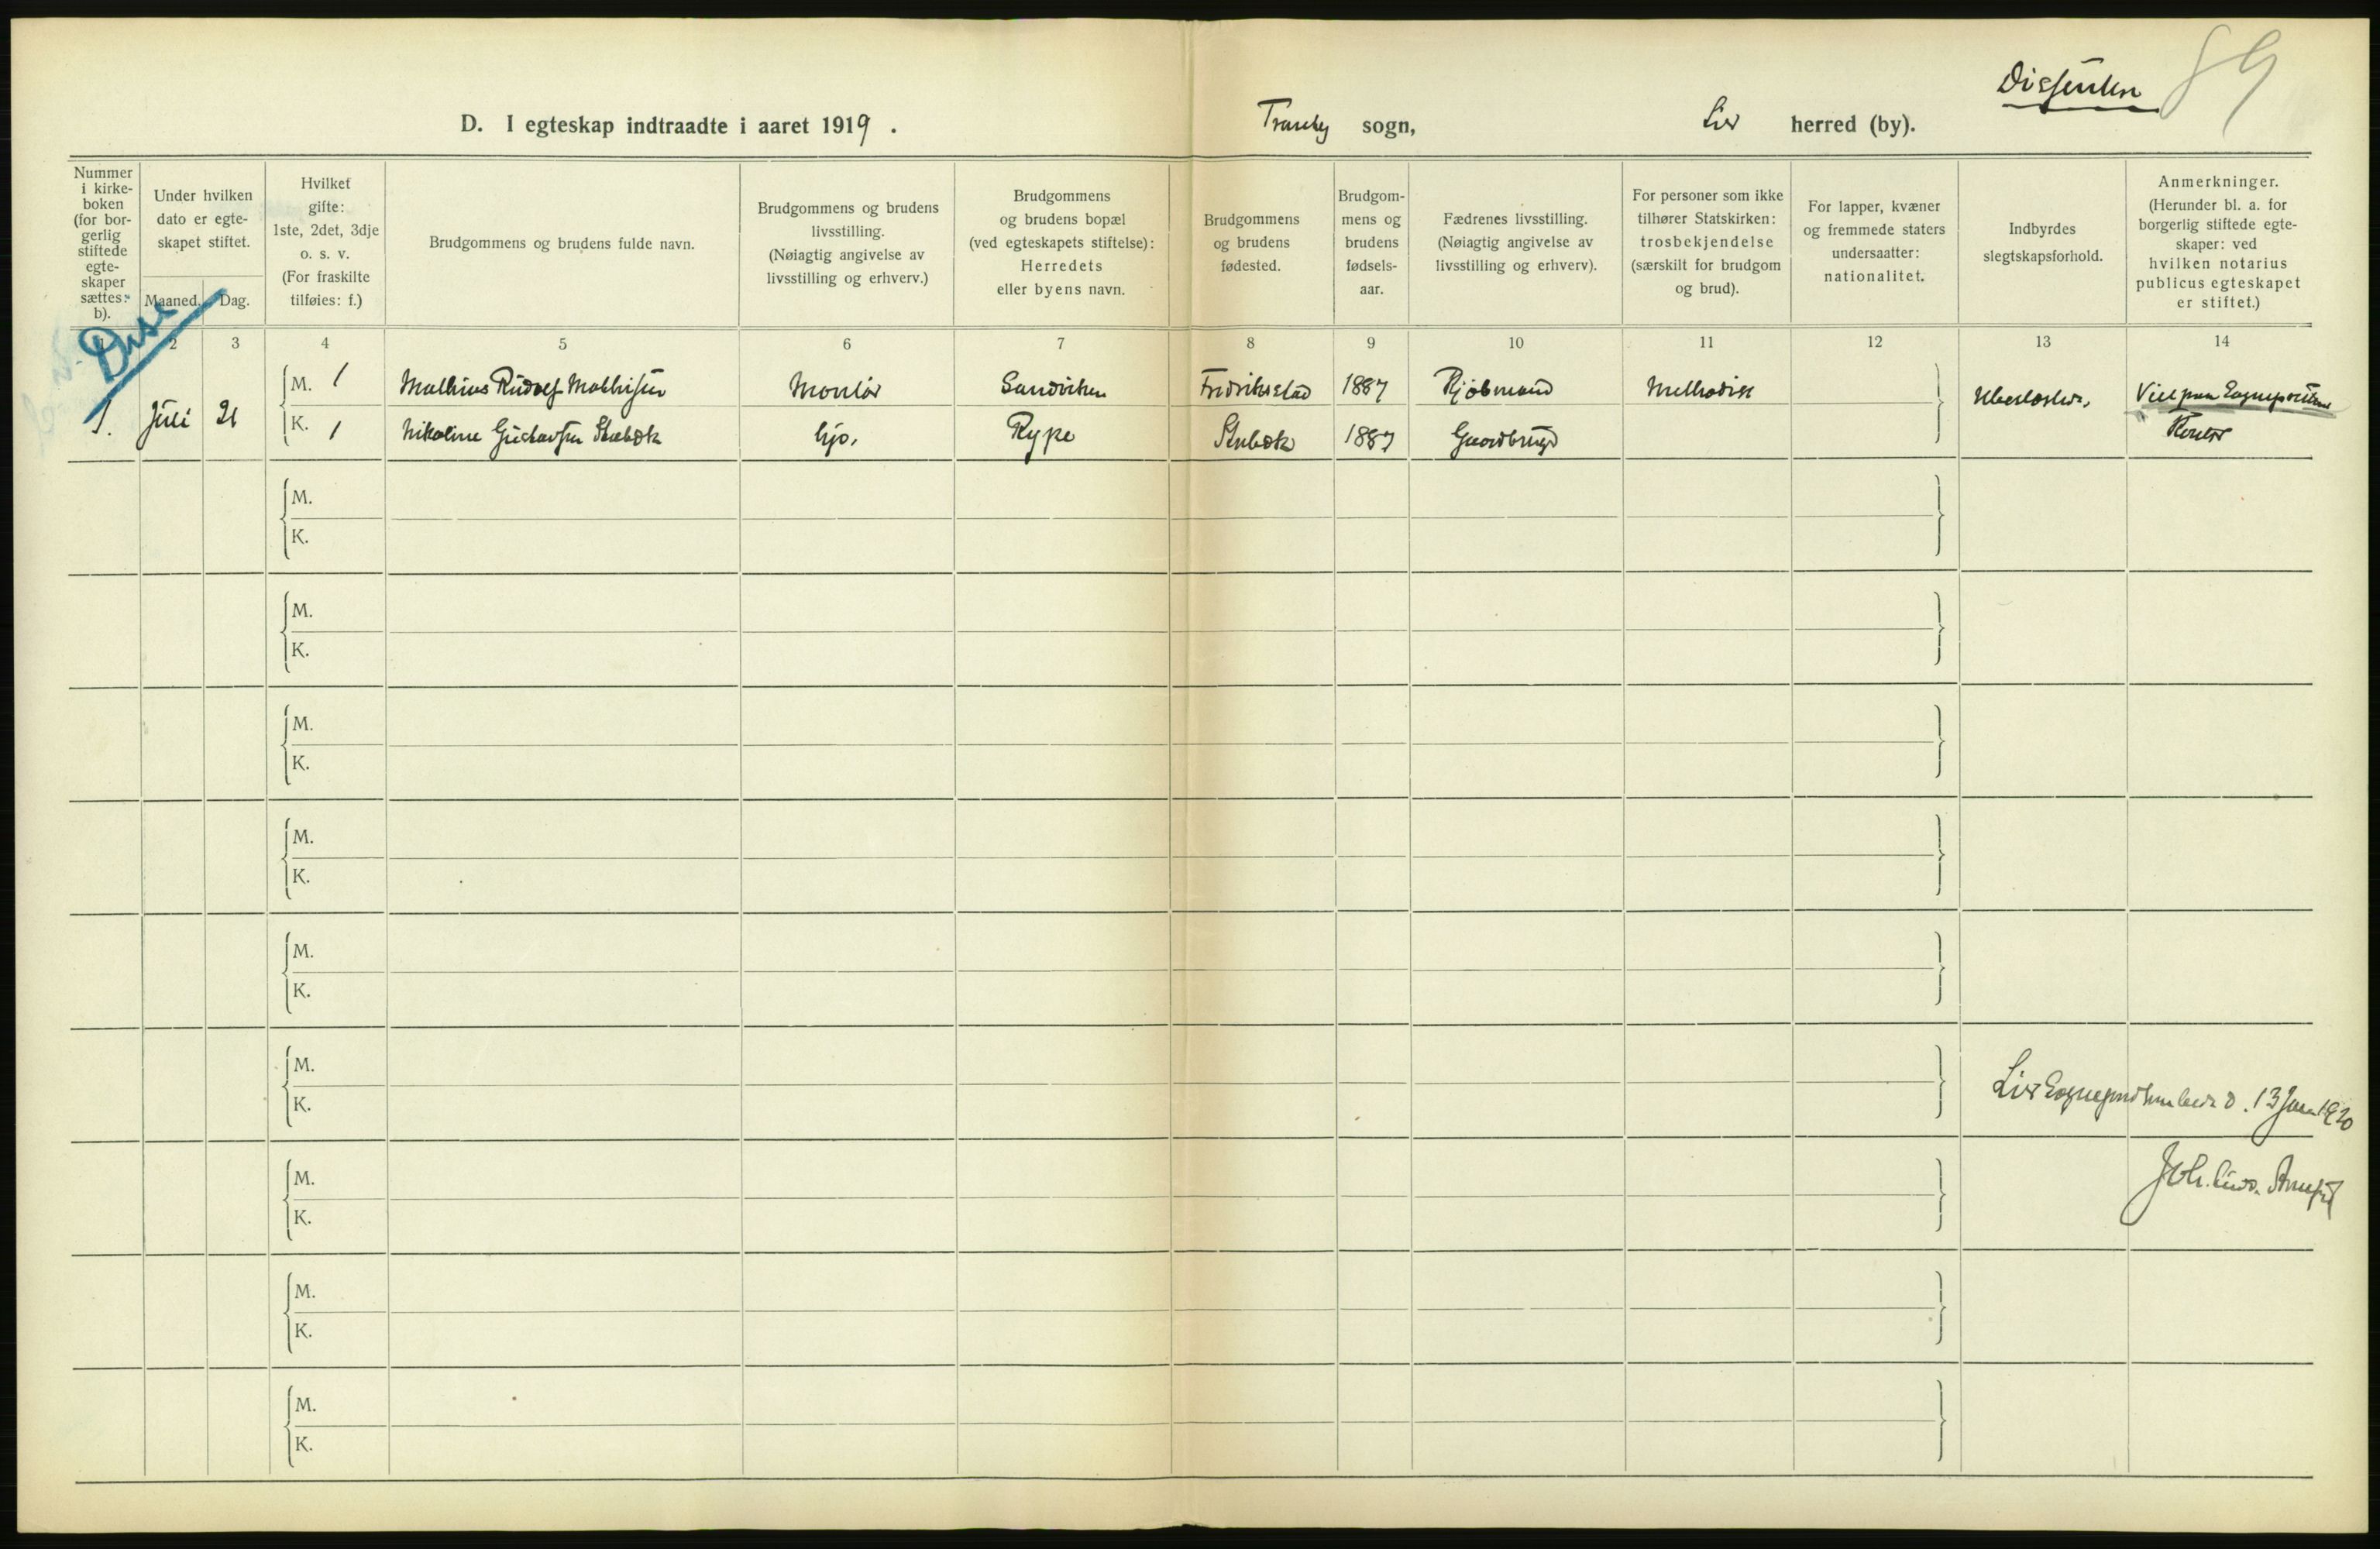 Dissenter 89
D. I egteskap indtraadte i aaret 1919. Tranby sogn, Lier herred (by).
Nummer
i kirke-
boken
(for bor-
gerlig
stiftede
egte-
skaper
sættes:
b).
Under hvilken
dato er egte-
skapet stiftet.
Maaned. Dag.
Hvilket
gifte:
1ste, 2det, 3dje
o. s. v.
(For fraskilte
tilføies: f.)
Brudgommens og brudens fulde navn.
Brudgommens og brudens
livsstilling.
(Nøiagtig angivelse av
livsstilling og erhverv.)
Brudgommens
og brudens bopæl
(ved egteskapets stiftelse):
Herredets
eller byens navn.
Brudgommens
og brudens
fødested.
Brudgom-
mens og
brudens
fødsels-
aar.
Fædrenes livsstilling.
(Nøiagtig angivelse av
livsstilling og erhverv).
For personer som ikke
tilhører Statskirken:
trosbekjendelse
(særskilt for brudgom
og brud).
For lapper, kvæner
og fremmede staters
undersaatter:
nationalitet.
Indbyrdes
slegtskapsforhold.
Anmerkninger.
(Herunder bl. a. for
borgerlig stiftede egte-
skaper: ved
hvilken notarius
publicus egteskapet
er stiftet.)
Diss
1 2 3 4 5 6 7 8 9 10 11 12 13 14
1. Juli 21
M. 1 Mathias Rudolf Mathisen Montør Sandviken Fredrikstad 1887 Kjøbmand Methodist Ubeslektet.
K. 1 Nikoline Gustavsen Stubæk hjv. Rype Stubæk 1887 Gaardbruger
M.
K.
M.
K.
M.
K.
M.
K.
M.
K.
M.
K.
Lier Sogneprestembede d. 13 Jan 1920
M.
K.
Joh.
M.
K.
M.
K.